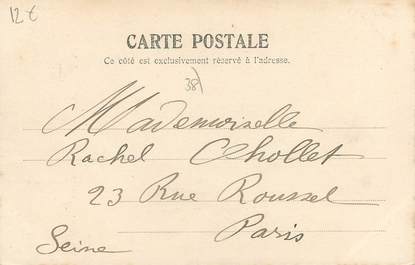 12€
CARTE POSTALE
Ce côté est exclusivement réservé à l'adresse.
38)
Mademoiselle
Rachel Chollet
23 Rue Roussel
Paris
Seine